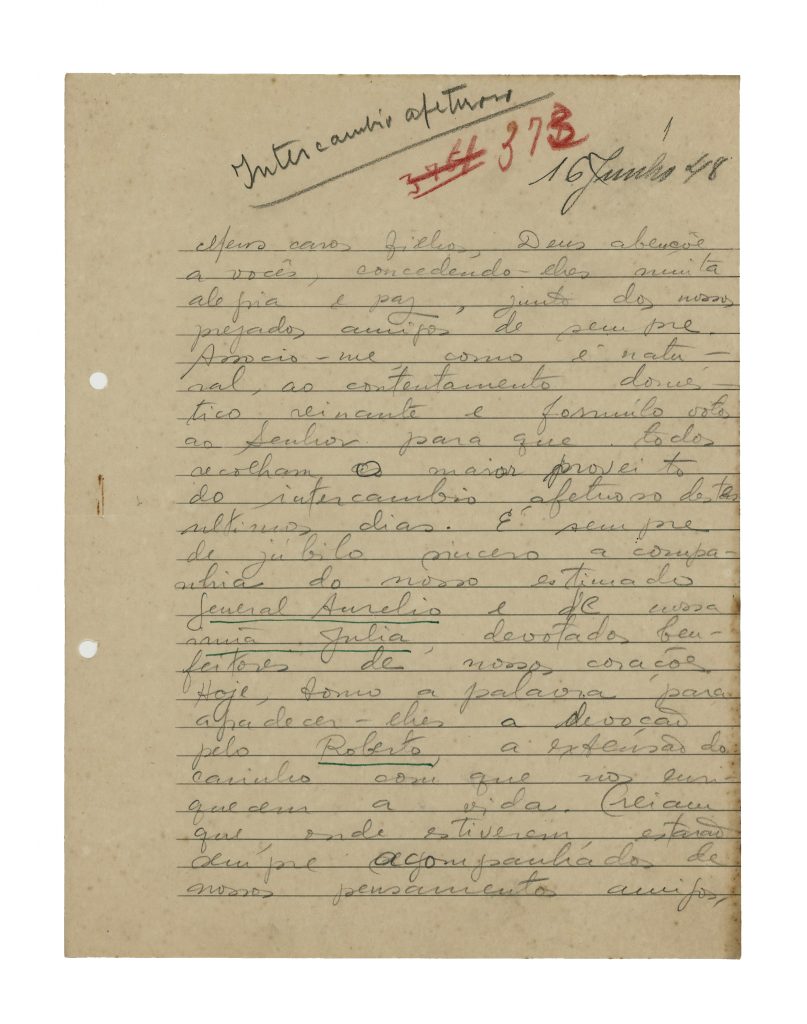 Intercambio afetuoso
373
1
16 Junho 48
Meus caros filhos, Deus abençôe
a vocês, concedendo-lhes muita
alegria e paz, junto dos nossos
prezados amigos de sempre.
Associo-me, como é natu-
ral, ao contentamento domés-
tico reinante e formúlo votos
ao Senhor para que todos
recolham o maior proveito
do intercambio afetuoso destes
ultimos dias. É sempre
de júbilo sincero a compa-
nhia do nosso estimado
General Aurelio e de nossa
Julia, devotados ben-
feitores de nossos corações.
Hoje, tomo a palavra para
agradecer-lhes a devoção
pelo Roberto, a extensão do
carinho com que nos enri-
quecem a vida. Creiam
que, onde estiverem, estarão
sempre acompanhados de
nossos pensamentos amigos,